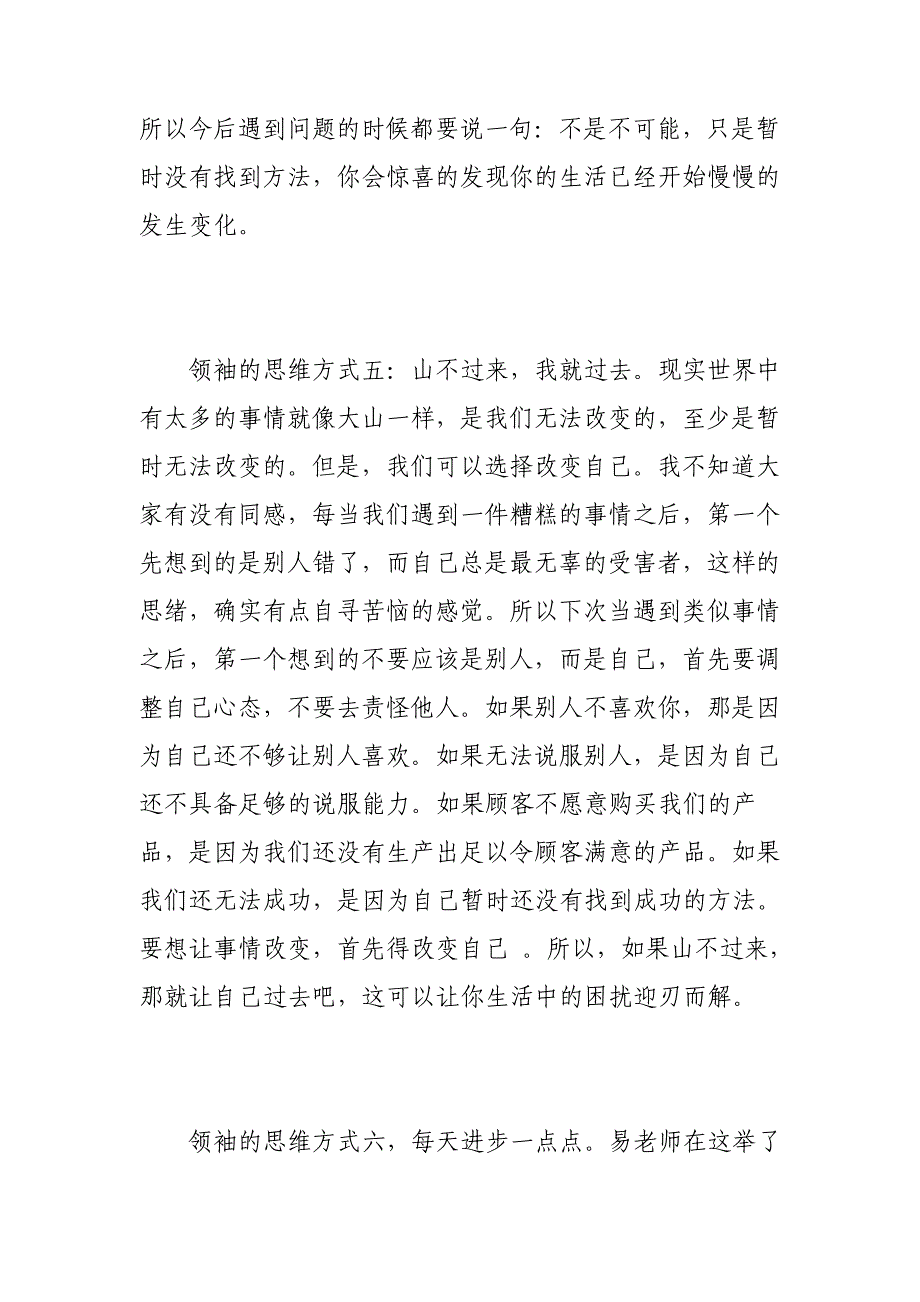 所以今后遇到问题的时候都要说一句：不是不可能，只是暂
时没有找到方法，你会惊喜的发现你的生活已经开始慢慢的
发生变化。
领袖的思维方式五：山不过来，我就过去。现实世界中
有太多的事情就像大山一样，是我们无法改变的，至少是暂
时无法改变的。但是，我们可以选择改变自己。我不知道大
家有没有同感，每当我们遇到一件糟糕的事情之后，第一个
先想到的是别人错了，而自己总是最无辜的受害者，这样的
思绪，确实有点自寻苦恼的感觉。所以下次当遇到类似事情
之后，第一个想到的不要应该是别人，而是自己，首先要调
整自己心态，不要去责怪他人。如果别人不喜欢你，那是因
为自己还不够让别人喜欢。如果无法说服别人，是因为自己
还不具备足够的说服能力。如果顾客不愿意购买我们的产
品，是因为我们还没有生产出足以令顾客满意的产品。如果
我们还无法成功，是因为自己暂时还没有找到成功的方法。
要想让事情改变，首先得改变自己 。所以，如果山不过来，
那就让自己过去吧，这可以让你生活中的困扰迎刃而解。
领袖的思维方式六，每天进步一点点。易老师在这举了